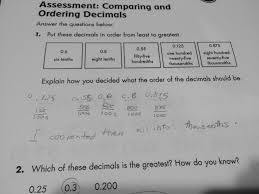 Assessment: Comparing and
Ordering Decimals
Answer the questions below:
1. Put these decimals in order from least to greatest.
0.6 0.8 0.55 0.125 0.875
six tenths eight tenths fifty-five hundredths one hundred twenty-five thousandths eight hundred seventy-five thousandths
Explain how you decided what the order of the decimals should be.
0.125 0.55 0.6 0.8 0.875
125 550 600 800 875
1000 1000 1000 1000
I converted them all into thousandths.
2. Which of these decimals is the greatest? How do you know?
0.25 0.3 0.200